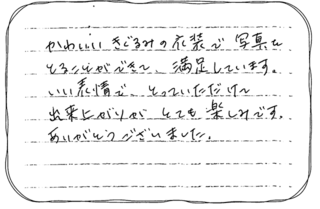 かわいい きぐるみの衣装で 写真を
とることができて、満足しています。
いい表情で、とっていただけて
出来上がりが とても 楽しみです。
ありがとうございました。